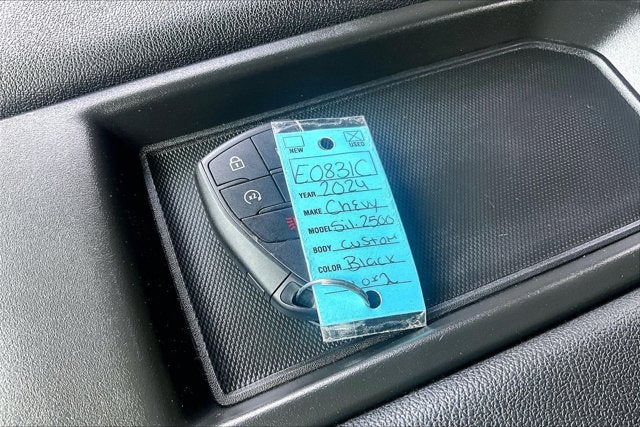 NEW USED
E0831C
YEAR 2024
MAKE Chevy
MODEL Sil 2500
BODY custom
COLOR Black
x2